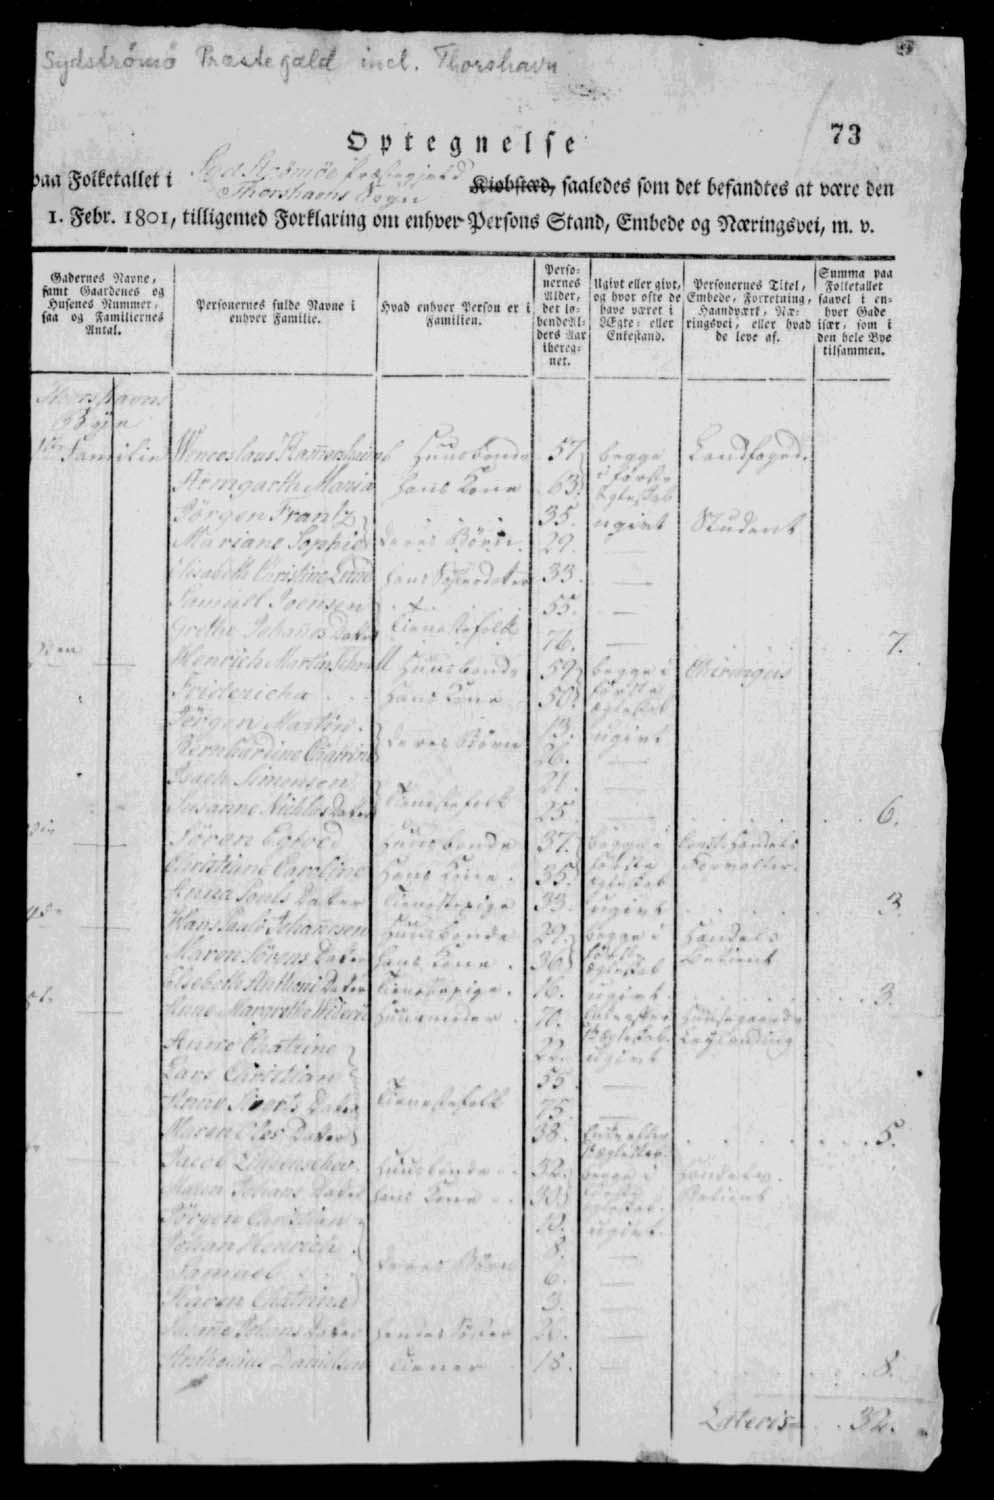 Sydstrømø Præstegæld incl. Thorshavn
73
Optegnelse
paa Folketallet i Syd Strömöe Præstegjeld Thorshavns Sogn Kiøbstæd, saaledes som det befandtes at være den
1. Febr. 1801, tilligemed Forklaring om enhver Persons Stand, Embede og Næringsvei, m. v.
Gadernes Navne, samt Gaardenes og Husenes Nummer, saa og Familiernes Antal.
Personernes fulde Navne i enhver Familie.
Hvad enhver Person er i Familien.
Personernes Alder, det løbende Alders Aar iberegnet.
Ugivt eller givt, og hvor ofte de have været i Ægte- eller Enkestand.
Personernes Titel, Embede, Forretning, Haandværk, Næringsvei, eller hvad de leve af.
Summa paa Folketallet saavel i enhver Gade især, som i den hele Bye tilsammen.
Thorshavns
Bye
1ste Familie Wenceslaus Hammershaimb Huusbonde 57 begge Landfoged.
Armgarth Maria hans Kone 63 i förste Egteskab
Jörgen Frantz 35. ugivt Student
Mariane Sophie deres Börn 29.
Elisabeth Christine hans Sösterdatter 33.
Samuel Joensen 55.
Grethe Johanes Datter Tienestefolk 76. 7.
Henrich Martin Huusbonde 59 begge i Chirurgus
Fridericha hans Kone 50 förste ægteskab
Jörgen Martin 13. ugivt
Bernhardine Chatrine deres Börn 26.
Isach Simonsen 21.
Susanne Nichlas Datter Tienestefolk 25. 6.
Sören Egtved Huusbonde 37. begge i Const. Handels
Christiane Caroline Hans Kone 35. förste ægteskab Forvalter.
Anna Pouls Datter Tienestepige 33. ugivt 3.
Hans Paulo Johannesen Huusbonde 29. begge i Handels
Maren Sörens Datter hans Kone 36 förste ægteskab Betient
Elsebeth Anthoni Datter Tienestepige. 16. ugivt. 3.
Anne Margrethe Huusmoder 70.
Anne Chatrine 22. ugivt
Lars Christian 55
Anne Siverts Datter Tienestefolk 75.
Maren Oles Datter 38. 5.
Jacob Huusbonde 32. begge i Handels
Maren Johans Datter hans Kone 30 förste Betient
Jörgen Christian 10. ugivt.
Johan Henrich 8.
Samuel deres Börn 6.
Karen Chatrina 3.
Johans Datter hendes Söster 26.
Anthonius Danielsen tiener 18. 8.
Lateris 32.